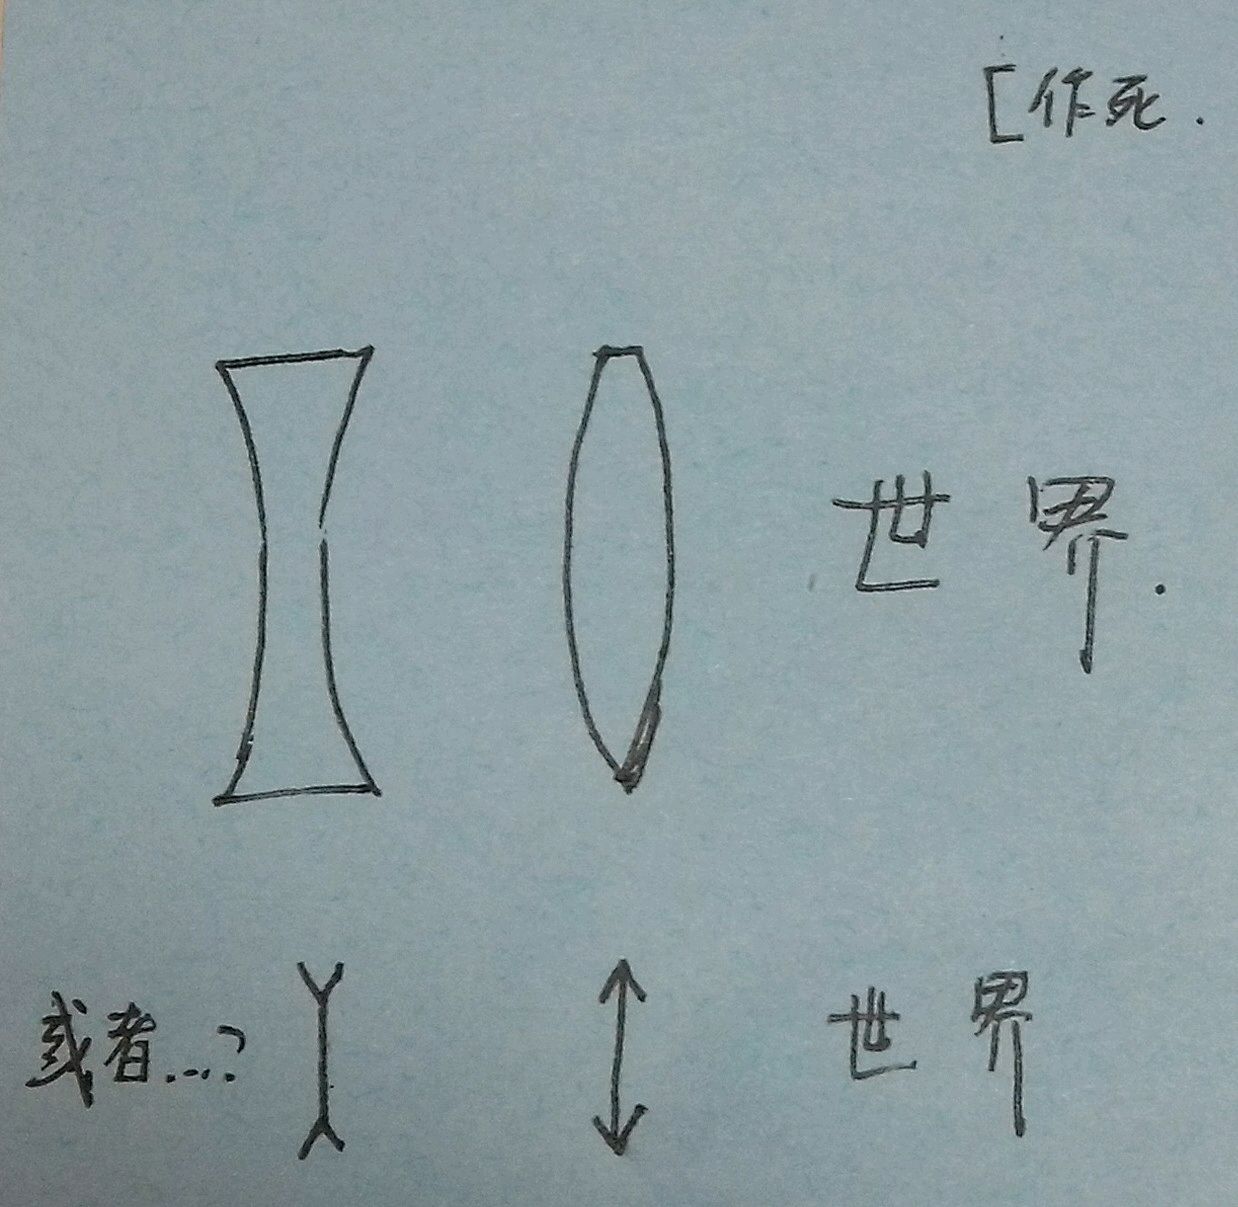 [作死.
世界.
或者...? 世界